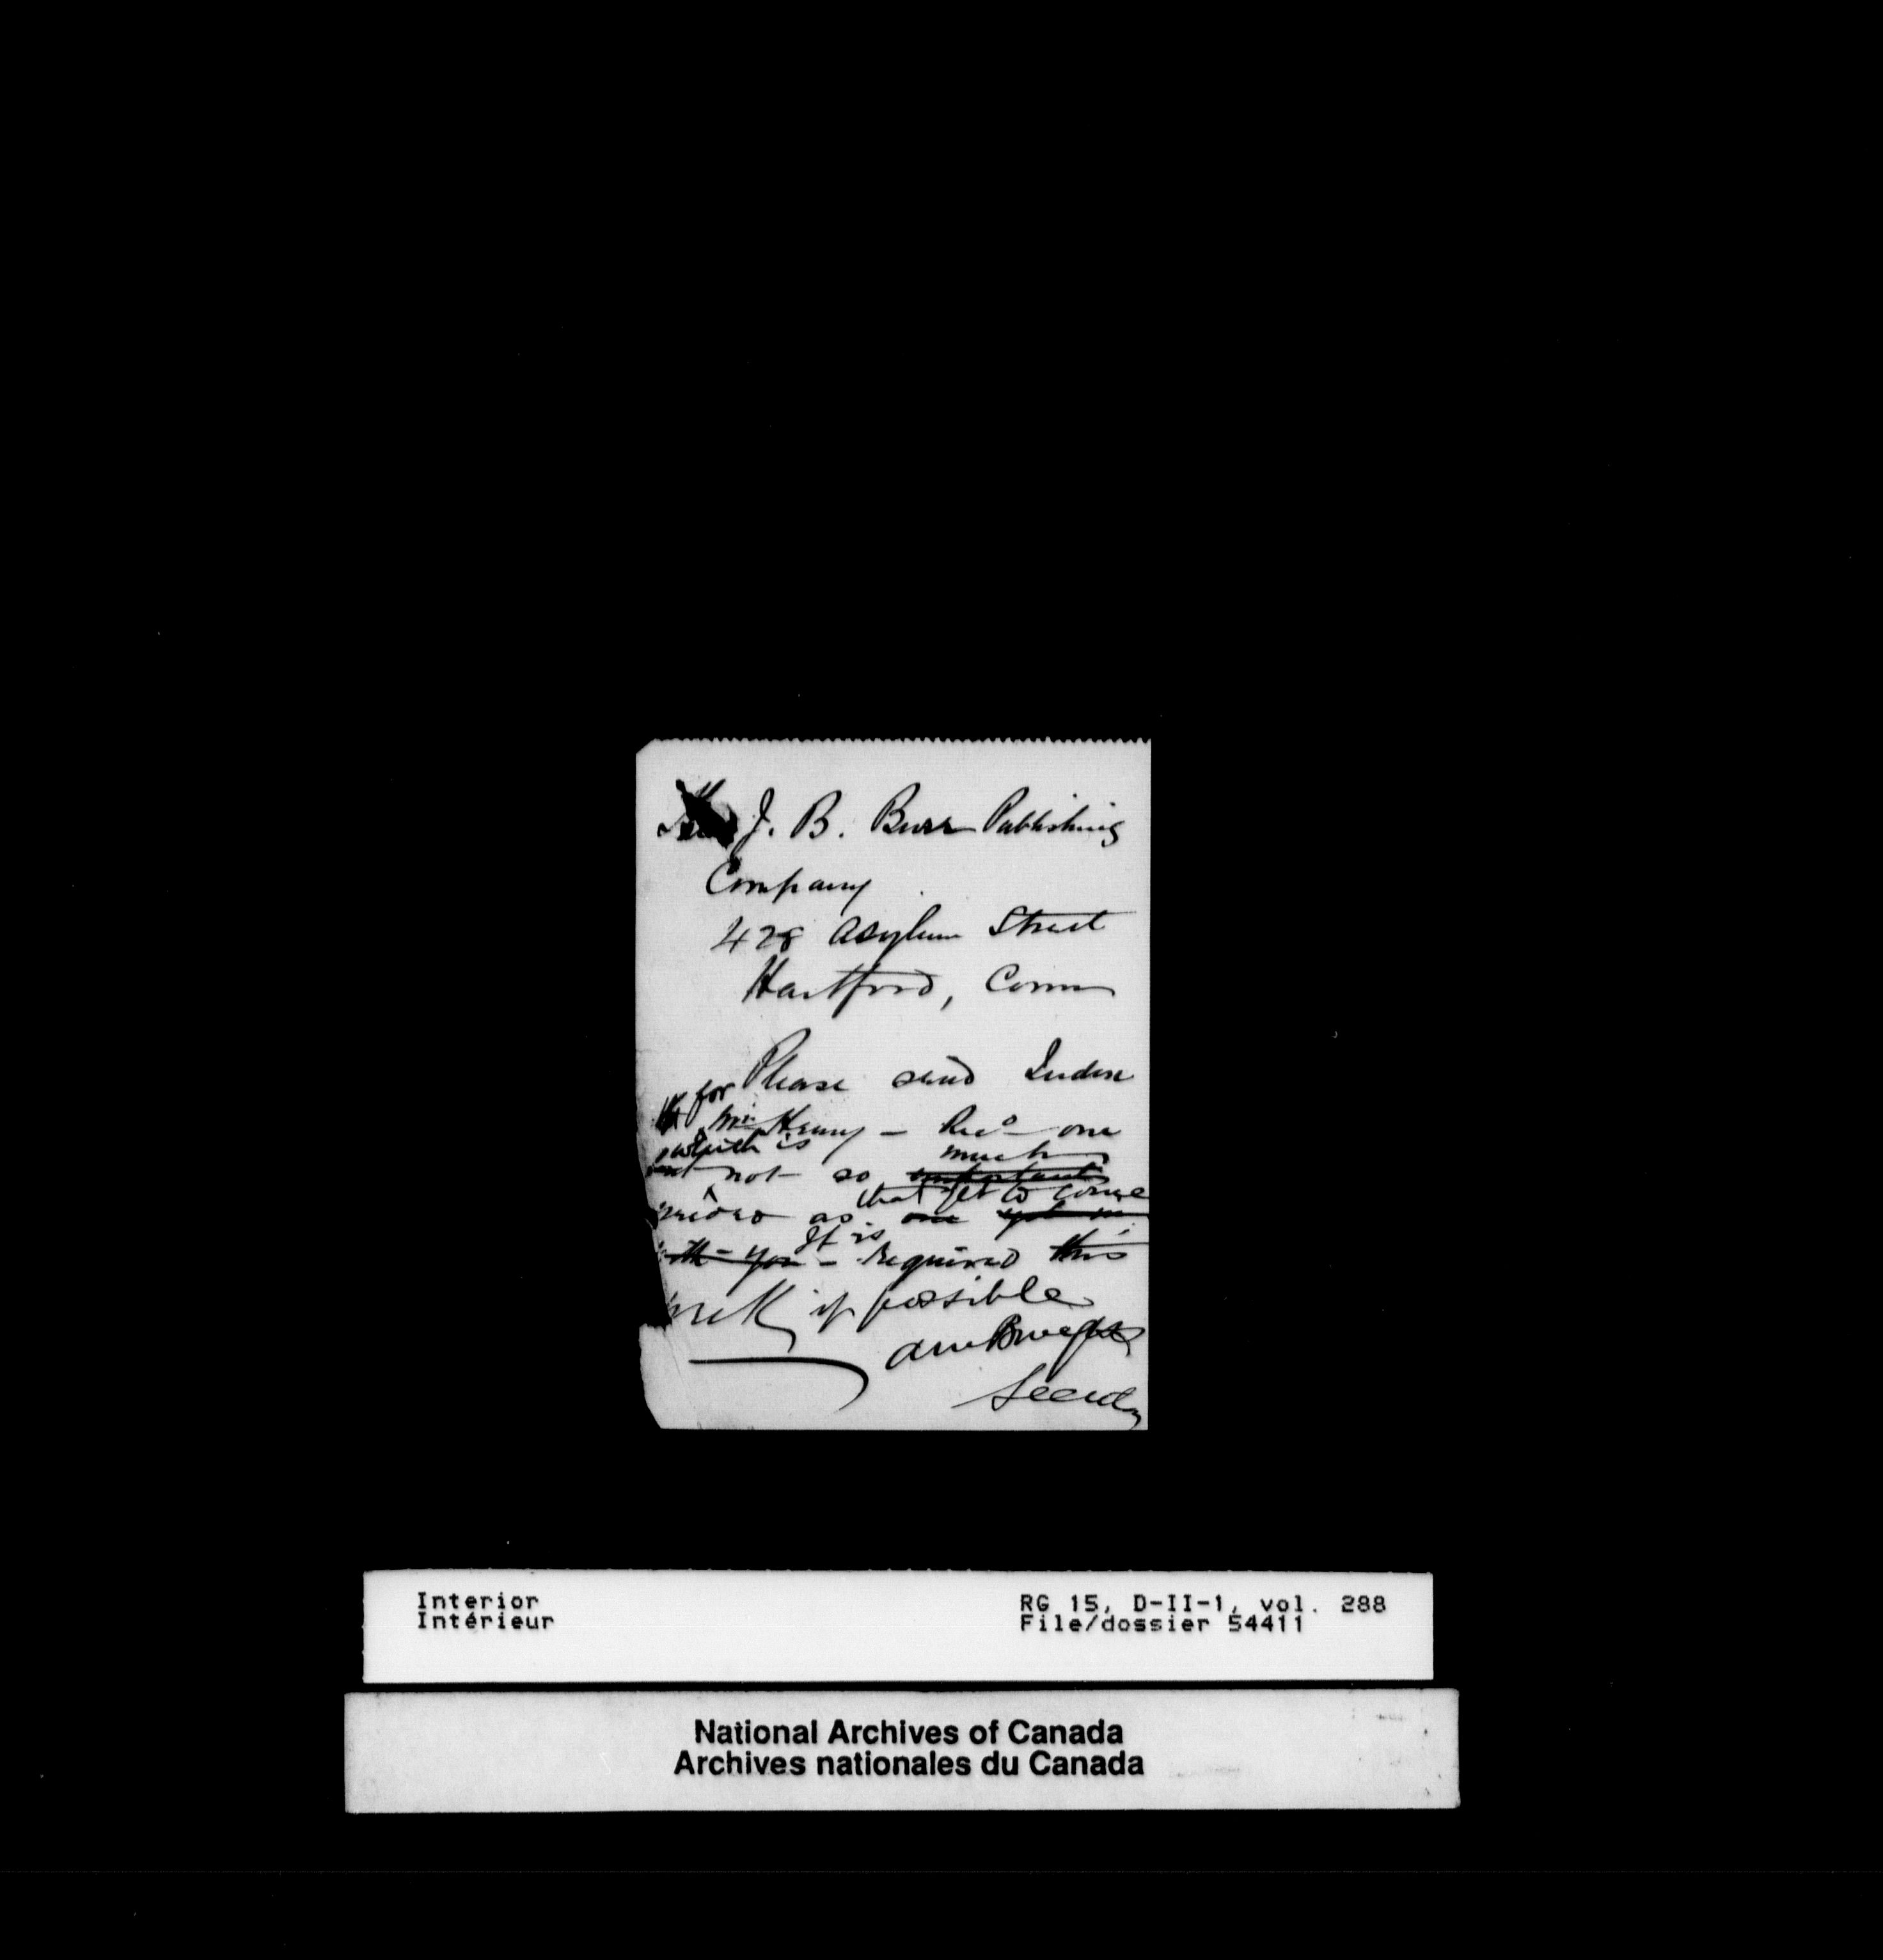 The J. B. Burr Publishing
Company
428 Asylum Street
Hartford, Conn
Please send Index
for Mr Henry - Recd one
which is much
not so important
that yet to come
as one yet
It is
you - required this
week if possible
Secrety
Interior
Intérieur
RG 15, D-II-1, vol. 288
File/dossier 54411
National Archives of Canada
Archives nationales du Canada